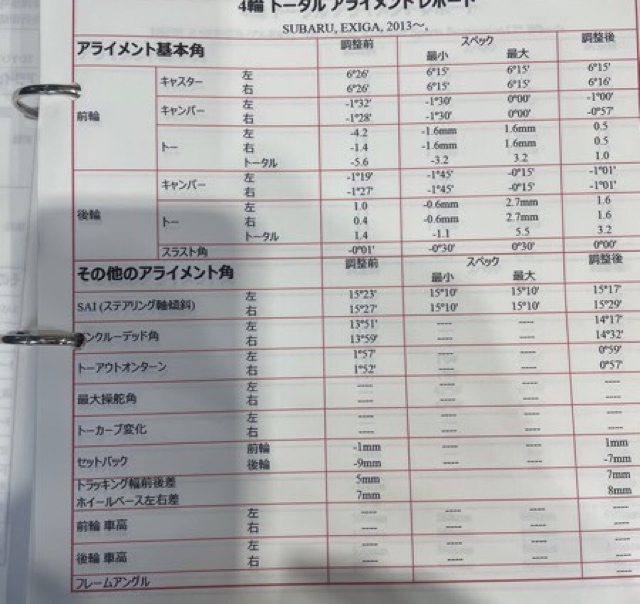 4輪 トータル アライメントレポート
SUBARU, EXIGA, 2013～,
アライメント基本角 調整前 スペック 調整後
最小 最大
前輪 キャスター 左 6°26' 6°15' 6°15' 6°15'
右 6°26' 6°15' 6°15' 6°16'
キャンバー 左 -1°32' -1°30' 0°00' -1°00'
右 -1°28' -1°30' 0°00' -0°57'
トー 左 -4.2 -1.6mm 1.6mm 0.5
右 -1.4 -1.6mm 1.6mm 0.5
トータル -5.6 -3.2 3.2 1.0
後輪 キャンバー 左 -1°19' -1°45' -0°15' -1°01'
右 -1°27' -1°45' -0°15' -1°01'
トー 左 1.0 -0.6mm 2.7mm 1.6
右 0.4 -0.6mm 2.7mm 1.6
トータル 1.4 -1.1 5.5 3.2
スラスト角 -0°01' -0°30' 0°30' 0°00'
その他のアライメント角 調整前 スペック 調整後
最小 最大
SAI (ステアリング軸傾斜) 左 15°23' 15°10' 15°10' 15°17'
右 15°27' 15°10' 15°10' 15°29'
ンクルーデッド角 左 13°51' ---- ---- 14°17'
右 13°59' ---- ---- 14°32'
トーアウトオンターン 左 1°57' ---- ---- 0°59'
右 1°52' ---- ---- 0°57'
最大操舵角 左 ---- ---- ---- ----
右 ---- ---- ---- ----
トーカーブ変化 左 ---- ---- ---- ----
右 ---- ---- ---- ----
セットバック 前輪 -1mm 1mm
後輪 -9mm -7mm
トラッキング幅前後差 5mm 7mm
ホイールベース左右差 7mm 8mm
前輪 車高 左 ---- ---- ---- ----
右 ---- ---- ---- ----
後輪 車高 左 ---- ---- ---- ----
右 ---- ---- ---- ----
フレームアングル ---- ----